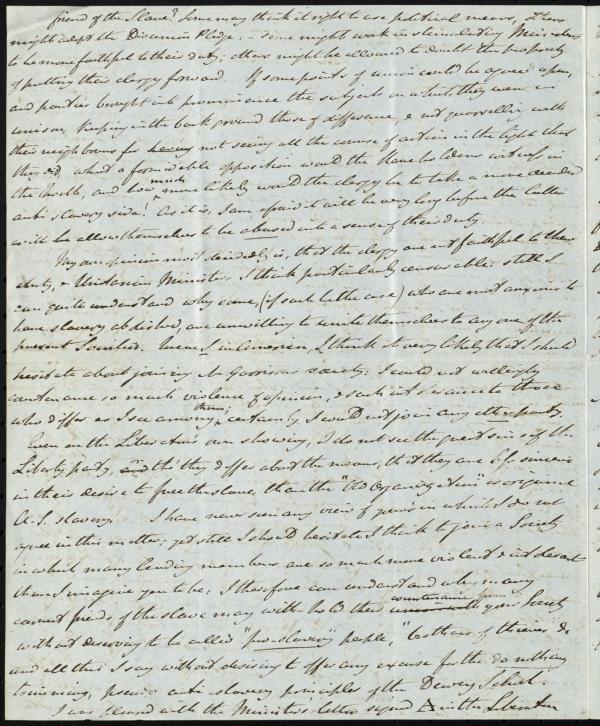 friend of the Slave? Some may think it right to use political means, others
might adopt the Disunion Pledge; some might work in stimulating Ministers
to be more faithful to their duty; others might be allowed to doubt the propriety
of putting their clergy forward. If some points of union could be agreed upon,
and parties brought into prominence the subjects on which they were in
unison, keeping in the back ground those of difference, & not quarrelling with
their neighbours for not seeing all the course of action in the light that
they did, what a formidable opposition would the slaveholders witness in
the North; and how much more likely would the clergy be to take a more decided
anti-slavery side! As it is, I am afraid it will be very long before the latter
will allow themselves to be abused into a sense of their duty.
My own opinion most decidedly is, that the clergy are not faithful to their
duty, & Unitarian Ministers I think particularly censurable: still I
can quite understand why some, (if such be the case) who are most anxious to
have slavery abolished, are unwilling to unite themselves to any one of the
present Societies. Were I in America, I think it very likely that I should
hesitate about joining the Garrison society: I could not willingly
countenance so much violence of opinion, & such to those
who differ as I see among them; certainly I would not join any other party.
Even on the Liberator's own showing, I do not see the great sin of the
Liberty party, and tho' they differ about the means, that they are less sincere
in their desire to free the slave, than the "Old Organization" or genuine
A. S. slavery! I have never seen any view of yours in which I do not
agree in this matter; yet still I should hesitate I think to join a Society
in which many leading members are so much more violent &
than I imagine you to be: I therefore can understand why many
earnest friends of the slave may withhold their countenance from your Society
without deserving to be called "pro-slavery" people, "brothers of thieves" &c
and all this I say without desiring to offer any excuse for the do nothing
trimming, pseudo anti-slavery principles of the Dewey School.
I was pleased with the Minister's letter signed in the Liberator